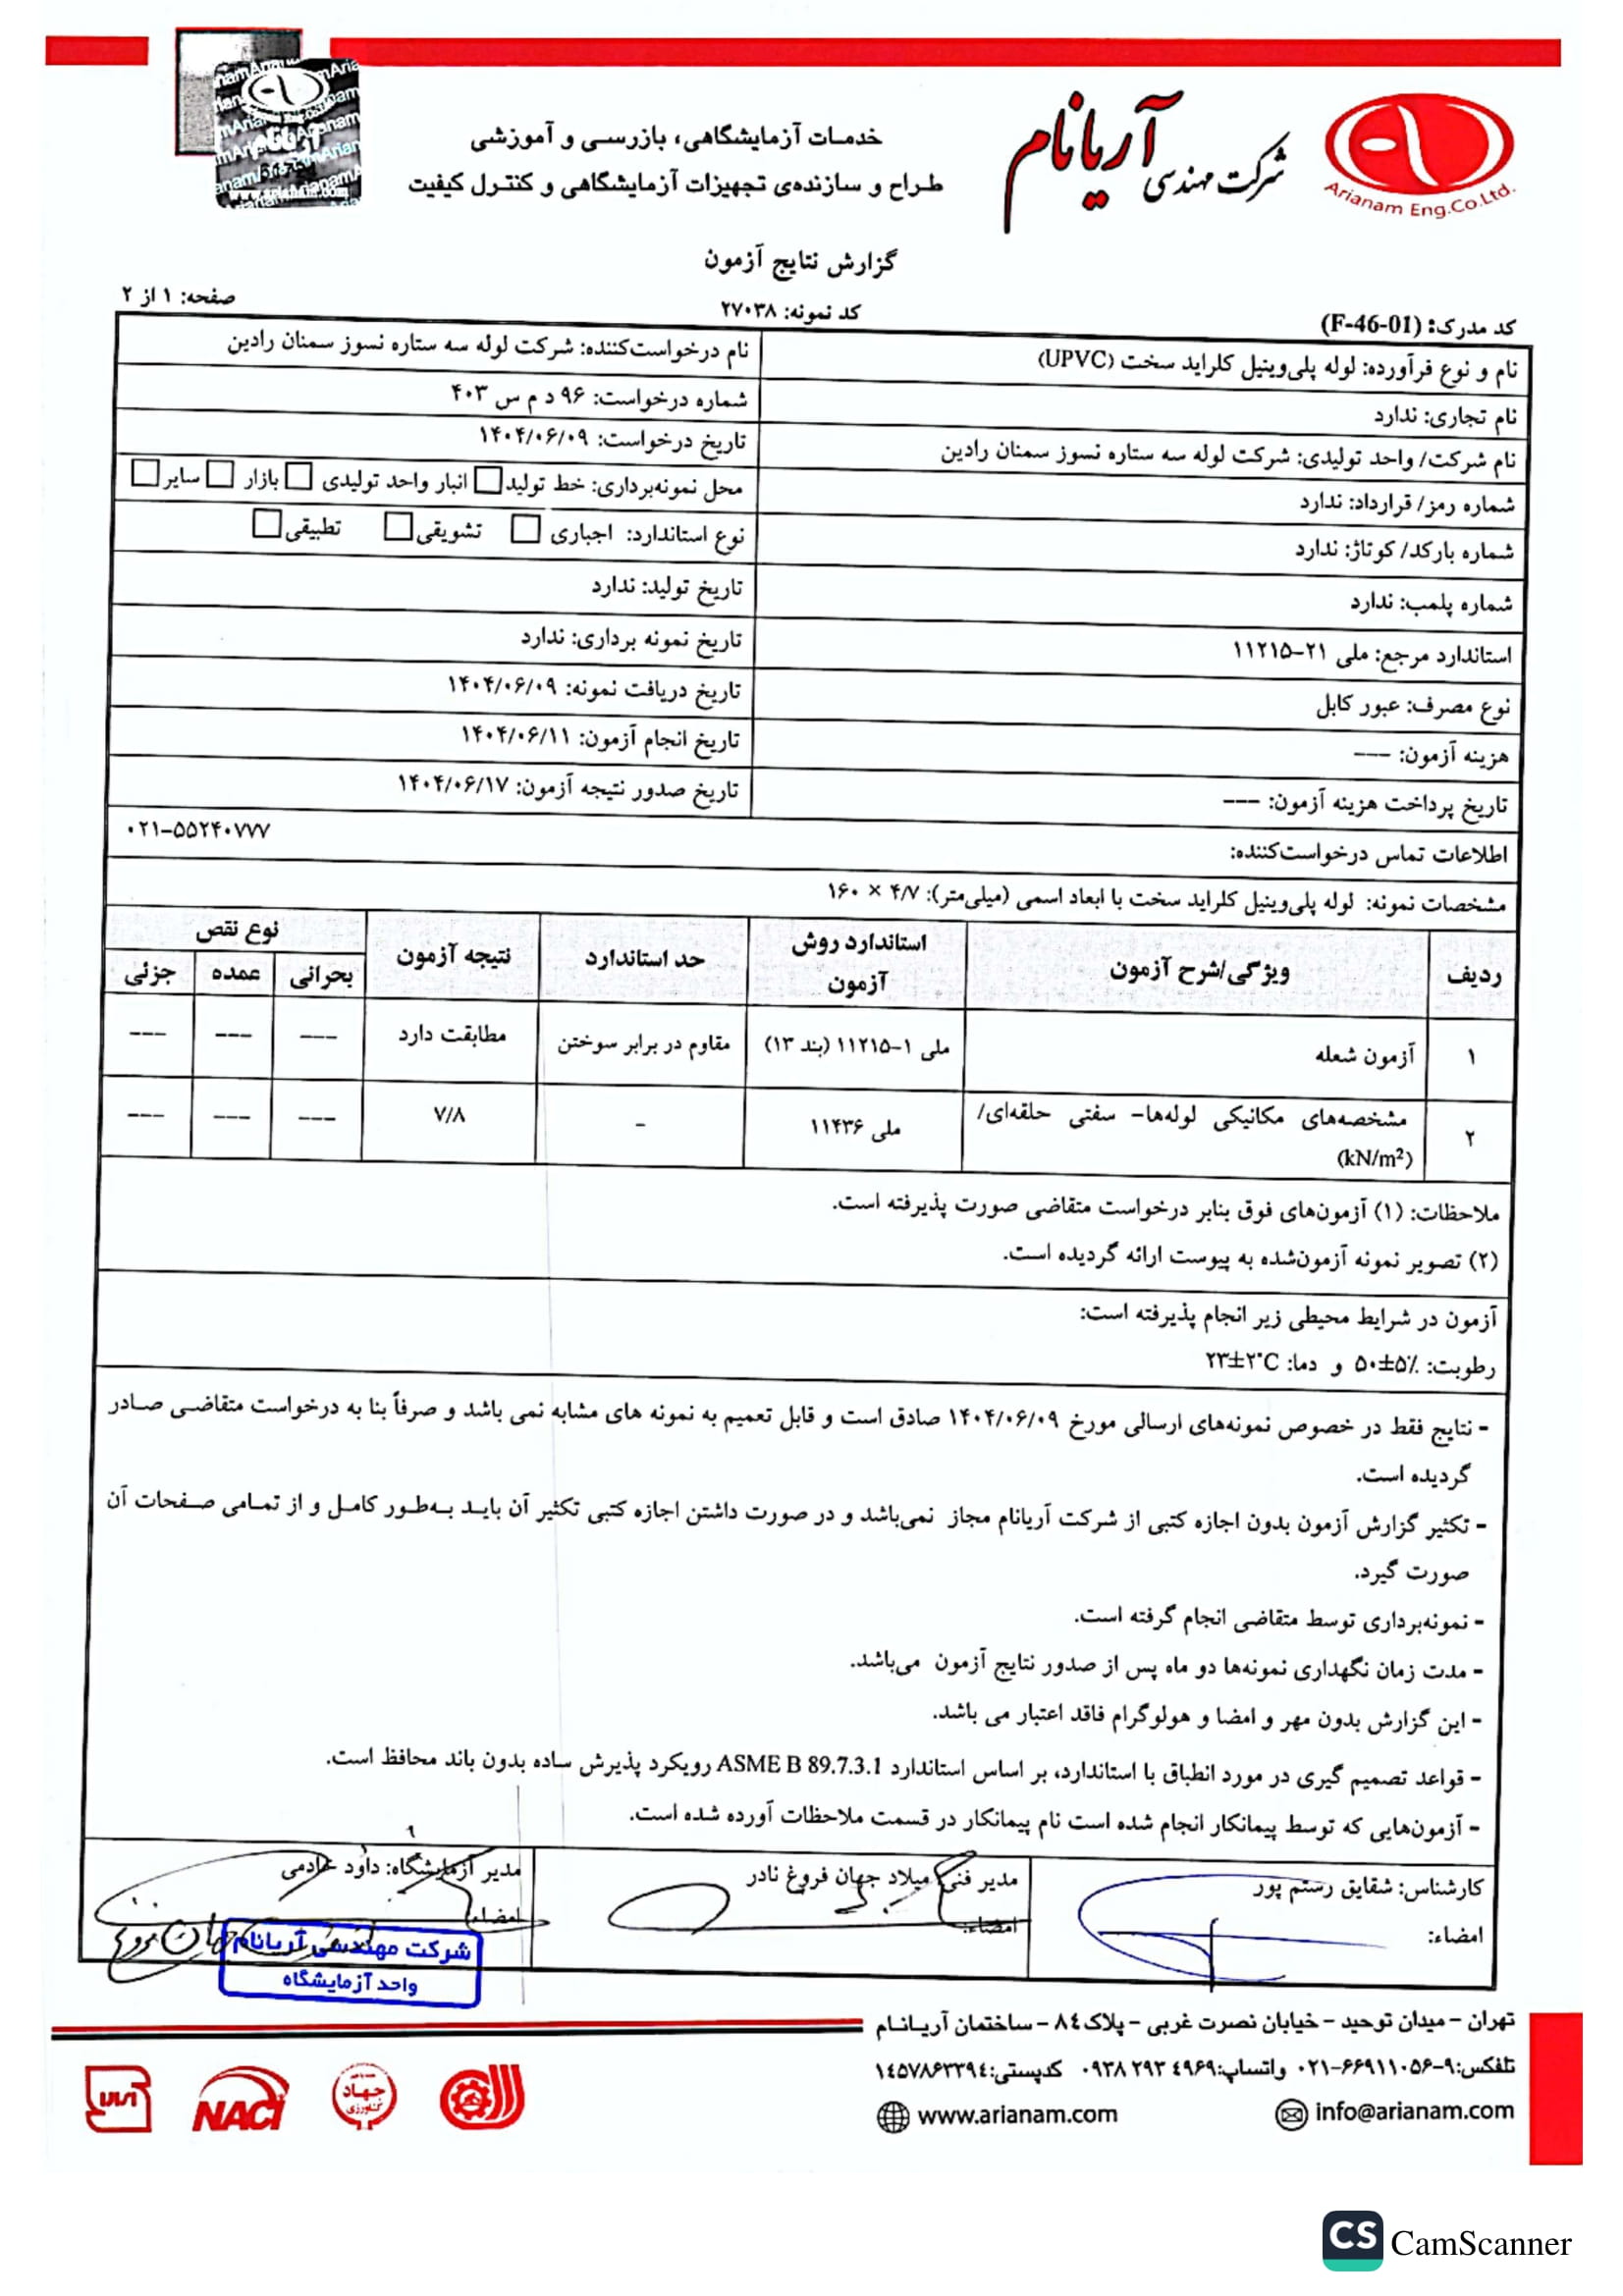 خدمات آزمایشگاهی، بازرسی و آموزشی
طراح و سازنده‌ی تجهیزات آزمایشگاهی و کنترل کیفیت
شرکت مهندسی آریانام
Arianam Eng.Co.Ltd.
گزارش نتایج آزمون
کد مدرک: (F-46-01)
کد نمونه: ۲۷۰۳۸
صفحه: ۱ از ۲
نام و نوع فرآورده: لوله پلی‌وینیل کلراید سخت (UPVC)
نام درخواست‌کننده: شرکت لوله سه ستاره نسوز سمنان رادین
نام تجاری: ندارد
شماره درخواست: ۹۶ د م س ۴۰۳
نام شرکت/ واحد تولیدی: شرکت لوله سه ستاره نسوز سمنان رادین
تاریخ درخواست: ۱۴۰۴/۰۶/۰۹
شماره رمز/ قرارداد: ندارد
محل نمونه‌برداری: خط تولید □ انبار واحد تولیدی □ بازار □ سایر □
شماره بارکد/ کوتاژ: ندارد
نوع استاندارد: اجباری □ تشویقی □ تطبیقی □
شماره پلمب: ندارد
تاریخ تولید: ندارد
استاندارد مرجع: ملی ۲۱-۱۱۲۱۵
تاریخ نمونه برداری: ندارد
نوع مصرف: عبور کابل
تاریخ دریافت نمونه: ۱۴۰۴/۰۶/۰۹
هزینه آزمون: ---
تاریخ انجام آزمون: ۱۴۰۴/۰۶/۱۱
تاریخ پرداخت هزینه آزمون: ---
تاریخ صدور نتیجه آزمون: ۱۴۰۴/۰۶/۱۷
اطلاعات تماس درخواست‌کننده: ۰۲۱-۵۵۲۴۰۷۷۷
مشخصات نمونه: لوله پلی‌وینیل کلراید سخت با ابعاد اسمی (میلی‌متر): ۴/۷ × ۱۶۰
ردیف ویژگی/شرح آزمون استاندارد روش آزمون حد استاندارد نتیجه آزمون نوع نقص
بحرانی عمده جزئی
۱ آزمون شعله ملی ۱-۱۱۲۱۵ (بند ۱۳) مقاوم در برابر سوختن مطابقت دارد --- --- ---
۲ مشخصه‌های مکانیکی لوله‌ها- سفتی حلقه‌ای/ ملی ۱۱۴۳۶ - ۷/۸ --- --- ---
(kN/m²)
ملاحظات: (۱) آزمون‌های فوق بنابر درخواست متقاضی صورت پذیرفته است.
(۲) تصویر نمونه آزمون‌شده به پیوست ارائه گردیده است.
آزمون در شرایط محیطی زیر انجام پذیرفته است:
رطوبت: ۵۰±۵٪ و دما: ۲۳±۲°C
- نتایج فقط در خصوص نمونه‌های ارسالی مورخ ۱۴۰۴/۰۶/۰۹ صادق است و قابل تعمیم به نمونه های مشابه نمی باشد و صرفاً بنا به درخواست متقاضی صادر
گردیده است.
- تکثیر گزارش آزمون بدون اجازه کتبی از شرکت آریانام مجاز نمی‌باشد و در صورت داشتن اجازه کتبی تکثیر آن باید به‌طور کامل و از تمامی صفحات آن
صورت گیرد.
- نمونه‌برداری توسط متقاضی انجام گرفته است.
- مدت زمان نگهداری نمونه‌ها دو ماه پس از صدور نتایج آزمون می‌باشد.
- این گزارش بدون مهر و امضا و هولوگرام فاقد اعتبار می باشد.
- قواعد تصمیم گیری در مورد انطباق با استاندارد، بر اساس استاندارد ASME B 89.7.3.1 رویکرد پذیرش ساده بدون باند محافظ است.
- آزمون‌هایی که توسط پیمانکار انجام شده است نام پیمانکار در قسمت ملاحظات آورده شده است.
کارشناس: شقایق رستم پور
امضاء:
مدیر فنی: میلاد جهان فروغ نادر
امضاء:
مدیر آزمایشگاه: داود عادمی
امضاء:
شرکت مهندسی آریانام
واحد آزمایشگاه
تهران - میدان توحید - خیابان نصرت غربی - پلاک ۸٤ - ساختمان آریانام
تلفکس: ۹-۶۶۹۱۱۰۵۶-۰۲۱ واتساپ: ۰۹۳۸ ۲۹۳ ٤۹۶۹ کدپستی: ۱٤۵۷۸۶۳۳۹٤
www.arianam.com
info@arianam.com
NACI
جهاد
کشاورزی
CS CamScanner